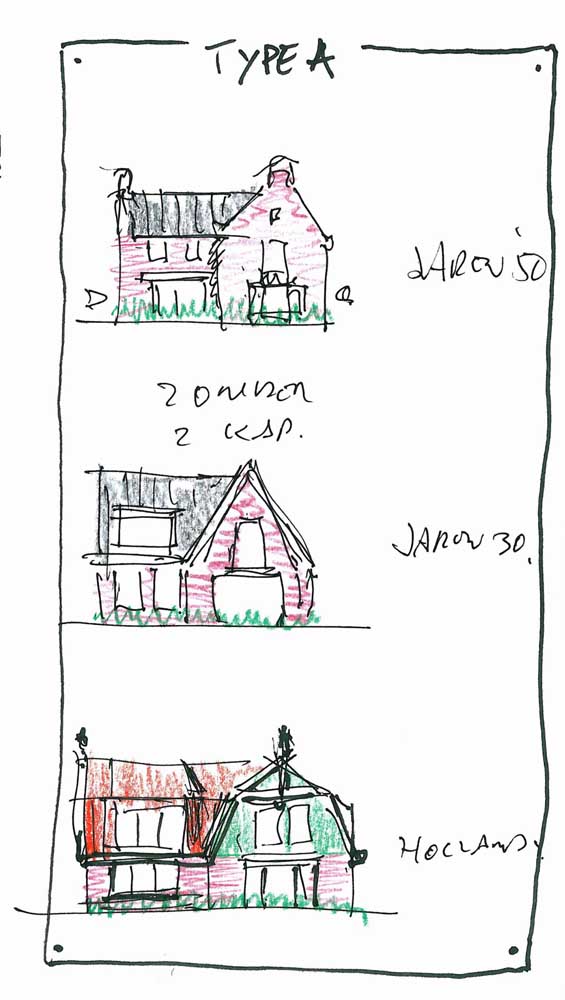 TYPE A
JAREN '50
2 ONDER
2 KAP.
JAREN 30.
HOLLAND.